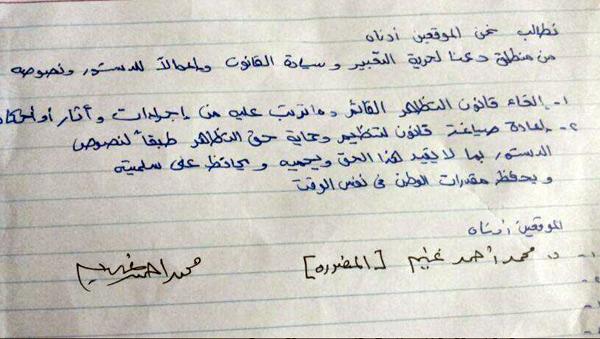 نطالب نحن الموقعين أدناه
من منطلق دعمنا لحرية التعبير وسيادة القانون وإعمالاً للدستور ونصوصه
١- إلغاء قانون التظاهر القائم وما ترتب عليه من إجراءات وأثار أو أحكام
٢- إعادة صياغة قانون لتنظيم وحماية حق التظاهر طبقاً لنصوص
الدستور بما لا يقيد لهذا الحق ويحميه ويحافظ على سلميته
ويحفظ مقدرات الوطن فى نفس الوقت
الموقعين أدناه
١- د. محمد أحمد غنيم [المنصوره] محمد احمد غنيم
٢-
٣-